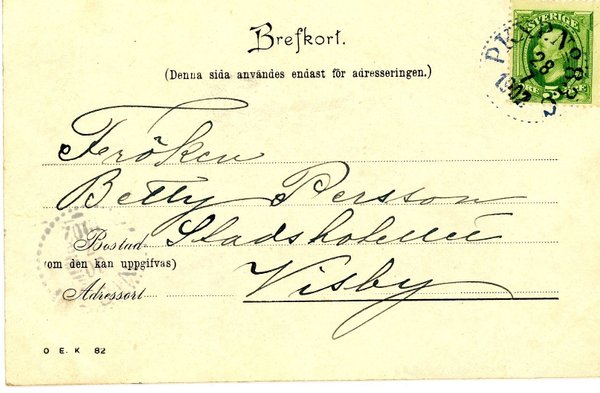 Brefkort.
(Denna sida användes endast för adresseringen.)
SVERIGE
PKXP.No 83
28
7
1902
Fröken
Betty Persson
Bostad Stadsholmen
(om den kan uppgifvas)
Adressort Visby
O E. K 82